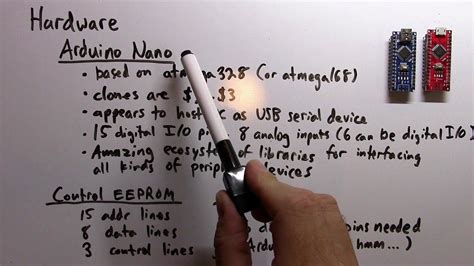 Hardware
Arduino Nano
• based on atmega328 (or atmega168)
• clones are $3
• appears to host as USB serial device
• 15 digital I/O 8 analog inputs (6 can be digital I/O)
• Amazing ecosystem of libraries for interfacing
all kinds of devices
Control EEPROM
15 addr lines
8 data lines needed
3 control lines hmm...)